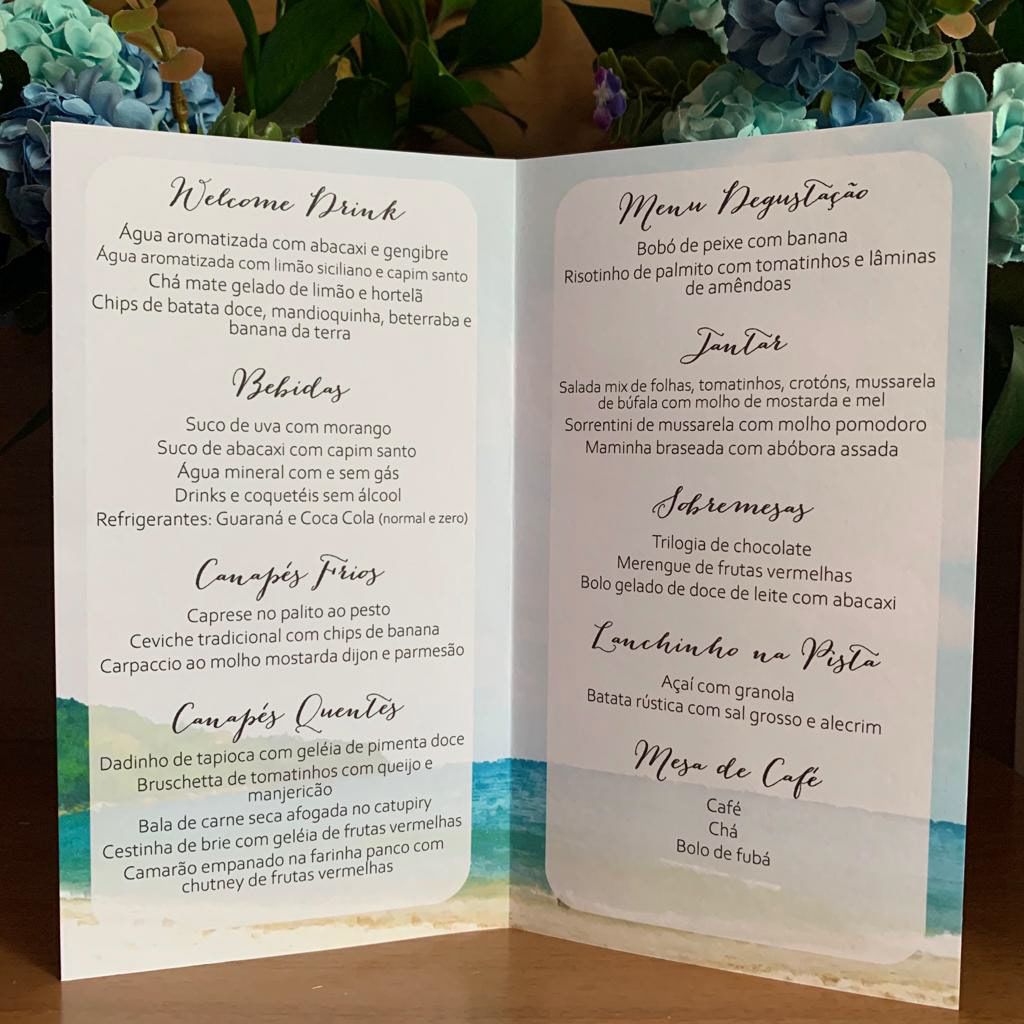 Welcome Drink
Água aromatizada com abacaxi e gengibre
Água aromatizada com limão siciliano e capim santo
Chá mate gelado de limão e hortelã
Chips de batata doce, mandioquinha, beterraba e
banana da terra
Bebidas
Suco de uva com morango
Suco de abacaxi com capim santo
Água mineral com e sem gás
Drinks e coquetéis sem álcool
Refrigerantes: Guaraná e Coca Cola (normal e zero)
Canapés Frios
Caprese no palito ao pesto
Ceviche tradicional com chips de banana
Carpaccio ao molho mostarda dijon e parmesão
Canapés Quentes
Dadinho de tapioca com geléia de pimenta doce
Bruschetta de tomatinhos com queijo e
manjericão
Bala de carne seca afogada no catupiry
Cestinha de brie com geléia de frutas vermelhas
Camarão empanado na farinha panco com
chutney de frutas vermelhas
Menu Degustação
Bobó de peixe com banana
Risotinho de palmito com tomatinhos e lâminas
de amêndoas
Jantar
Salada mix de folhas, tomatinhos, crotóns, mussarela
de búfala com molho de mostarda e mel
Sorrentini de mussarela com molho pomodoro
Maminha braseada com abóbora assada
Sobremesas
Trilogia de chocolate
Merengue de frutas vermelhas
Bolo gelado de doce de leite com abacaxi
Lanchinho na Pista
Açaí com granola
Batata rústica com sal grosso e alecrim
Mesa de Café
Café
Chá
Bolo de fubá